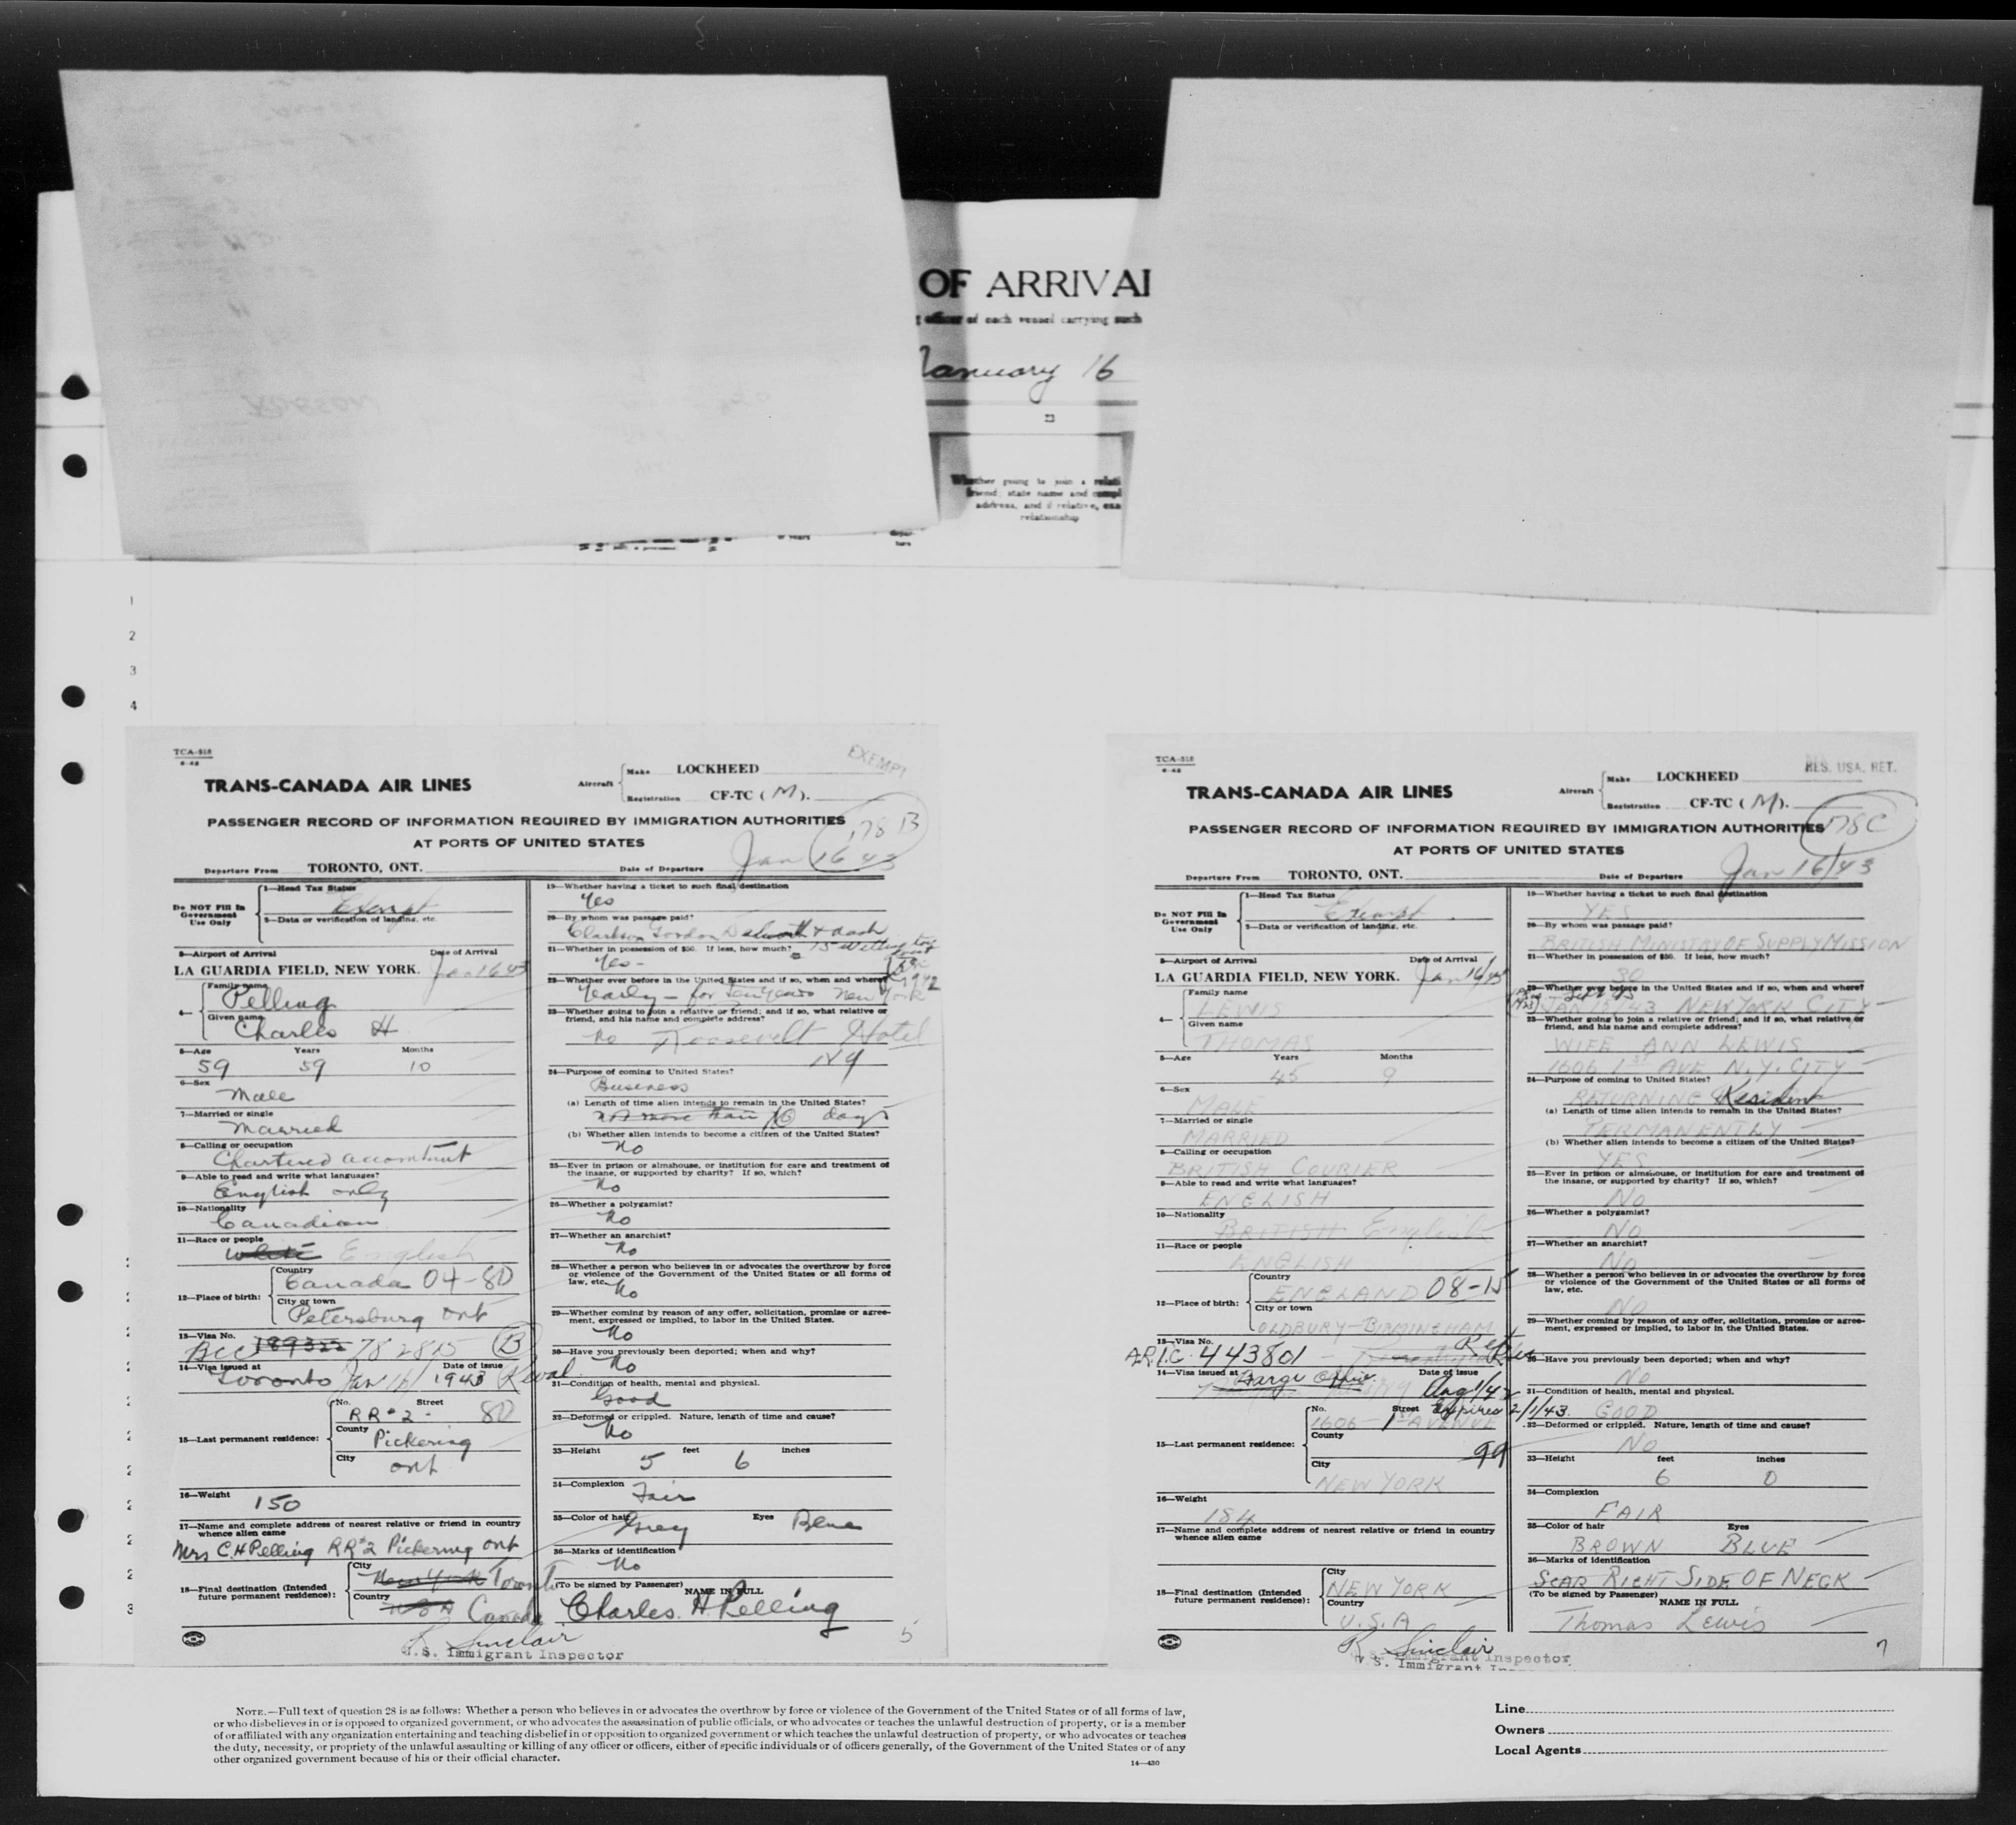 OF ARRIVAL
officer of each vessel carrying such
January 16
Whether going to join a
friend; state name and
address, and if relative,
relationship
1
2
3
4
TCA-518
6-42
EXEMPT
TRANS-CANADA AIR LINES
Aircraft
Make LOCKHEED
Registration CF-TC ( M ).
PASSENGER RECORD OF INFORMATION REQUIRED BY IMMIGRATION AUTHORITIES
AT PORTS OF UNITED STATES
178 B
Departure From TORONTO, ONT. Date of Departure Jan 16 43
Do NOT Fill In Government Use Only
1—Head Tax Status
Exempt
2—Data or verification of landing, etc.
3—Airport of Arrival Date of Arrival
LA GUARDIA FIELD, NEW YORK. Jan 16 43
4—
Family name
Pelling
Given name
Charles H
5—Age Years Months
59 59 10
6—Sex
Male
7—Married or single
Married
8—Calling or occupation
Chartered accountant
9—Able to read and write what languages?
English only
10—Nationality
Canadian
11—Race or people
white English
12—Place of birth:
Country
Canada 04-80
City or town
Petersburg Ont
13—Visa No.
BCC 189322 782815 B
14—Visa issued at Date of issue
Toronto Jan 16/ 1943 Reval
15—Last permanent residence:
No. Street
RR#2- 80
County
Pickering
City
ont
16—Weight
150
17—Name and complete address of nearest relative or friend in country
whence alien came
Mrs C.H Pelling RR#2 Pickering ont
18—Final destination (Intended
future permanent residence):
City
New York Toronto
Country
USA Canada
19—Whether having a ticket to such final destination
Yes
20—By whom was passage paid?
Clarkson Gordon Dilworth & Nash
21—Whether in possession of $50. If less, how much?
15 Wellington
Yes-
22—Whether ever before in the United States and if so, when and where?
1942
Yearly - for ten years New York
23—Whether going to join a relative or friend; and if so, what relative or
friend, and his name and complete address?
no Roosevelt Hotel
NY
24—Purpose of coming to United States?
Business
(a) Length of time alien intends to remain in the United States?
not more than 10 days
(b) Whether alien intends to become a citizen of the United States?
No
25—Ever in prison or almshouse, or institution for care and treatment of
the insane, or supported by charity? If so, which?
No
26—Whether a polygamist?
No
27—Whether an anarchist?
No
28—Whether a person who believes in or advocates the overthrow by force
or violence of the Government of the United States or all forms of
law, etc.
No
29—Whether coming by reason of any offer, solicitation, promise or agree-
ment, expressed or implied, to labor in the United States.
No
30—Have you previously been deported; when and why?
No
31—Condition of health, mental and physical.
Good
32—Deformed or crippled. Nature, length of time and cause?
No
33—Height feet inches
5 6
34—Complexion
Fair
35—Color of hair Eyes
Grey Blue
36—Marks of identification
No
(To be signed by Passenger)
NAME IN FULL
Charles. H Pelling
R Sinclair
U.S. Immigrant Inspector
5
TCA-518
6-42
RES. USA. RET.
TRANS-CANADA AIR LINES
Aircraft
Make LOCKHEED
Registration CF-TC ( M ).
PASSENGER RECORD OF INFORMATION REQUIRED BY IMMIGRATION AUTHORITIES
AT PORTS OF UNITED STATES
178 C
Departure From TORONTO, ONT. Date of Departure Jan 16/43
Do NOT Fill In Government Use Only
1—Head Tax Status
Exempt
2—Data or verification of landing, etc.
3—Airport of Arrival Date of Arrival
LA GUARDIA FIELD, NEW YORK. Jan 16/43
4—
Family name
LEWIS
Given name
THOMAS
5—Age Years Months
45 9
6—Sex
MALE
7—Married or single
MARRIED
8—Calling or occupation
BRITISH COURIER
9—Able to read and write what languages?
ENGLISH
10—Nationality
BRITISH English
11—Race or people
ENGLISH
12—Place of birth:
Country
ENGLAND 08-15
City or town
OLDBURY-BIRMINGHAM
13—Visa No.
A.R.I.C. 443801
14—Visa issued at Date of issue
Aug 1/42
Expires 2/1/43.
15—Last permanent residence:
No. Street
1606 - 1st AVENUE
County
99
City
NEW YORK
16—Weight
184
17—Name and complete address of nearest relative or friend in country
whence alien came
18—Final destination (Intended
future permanent residence):
City
NEW YORK
Country
U.S.A
19—Whether having a ticket to such final destination
YES
20—By whom was passage paid?
BRITISH MINISTRY OF SUPPLY MISSION
21—Whether in possession of $50. If less, how much?
30
22—Whether ever before in the United States and if so, when and where?
JAN 15/43 NEW YORK CITY
23—Whether going to join a relative or friend; and if so, what relative or
friend, and his name and complete address?
WIFE ANN LEWIS
1606 1st AVE N.Y. CITY
24—Purpose of coming to United States?
RETURNING Resident
(a) Length of time alien intends to remain in the United States?
PERMANENTLY
(b) Whether alien intends to become a citizen of the United States?
YES
25—Ever in prison or almshouse, or institution for care and treatment of
the insane, or supported by charity? If so, which?
No
26—Whether a polygamist?
No
27—Whether an anarchist?
No
28—Whether a person who believes in or advocates the overthrow by force
or violence of the Government of the United States or all forms of
law, etc.
No
29—Whether coming by reason of any offer, solicitation, promise or agree-
ment, expressed or implied, to labor in the United States.
30—Have you previously been deported; when and why?
No
31—Condition of health, mental and physical.
GOOD
32—Deformed or crippled. Nature, length of time and cause?
No
33—Height feet inches
6 0
34—Complexion
FAIR
35—Color of hair Eyes
BROWN BLUE
36—Marks of identification
SCAR RIGHT SIDE OF NECK
(To be signed by Passenger)
NAME IN FULL
Thomas Lewis
R Sinclair
U.S. Immigrant Inspector
7
NOTE.—Full text of question 28 is as follows: Whether a person who believes in or advocates the overthrow by force or violence of the Government of the United States or of all forms of law,
or who disbelieves in or is opposed to organized government, or who advocates the assassination of public officials, or who advocates or teaches the unlawful destruction of property, or is a member
of or affiliated with any organization entertaining and teaching disbelief in or opposition to organized government or which teaches the unlawful destruction of property, or who advocates or teaches
the duty, necessity, or propriety of the unlawful assaulting or killing of any officer or officers, either of specific individuals or of officers generally, of the Government of the United States or of any
other organized government because of his or their official character.
14—430
Line
Owners
Local Agents